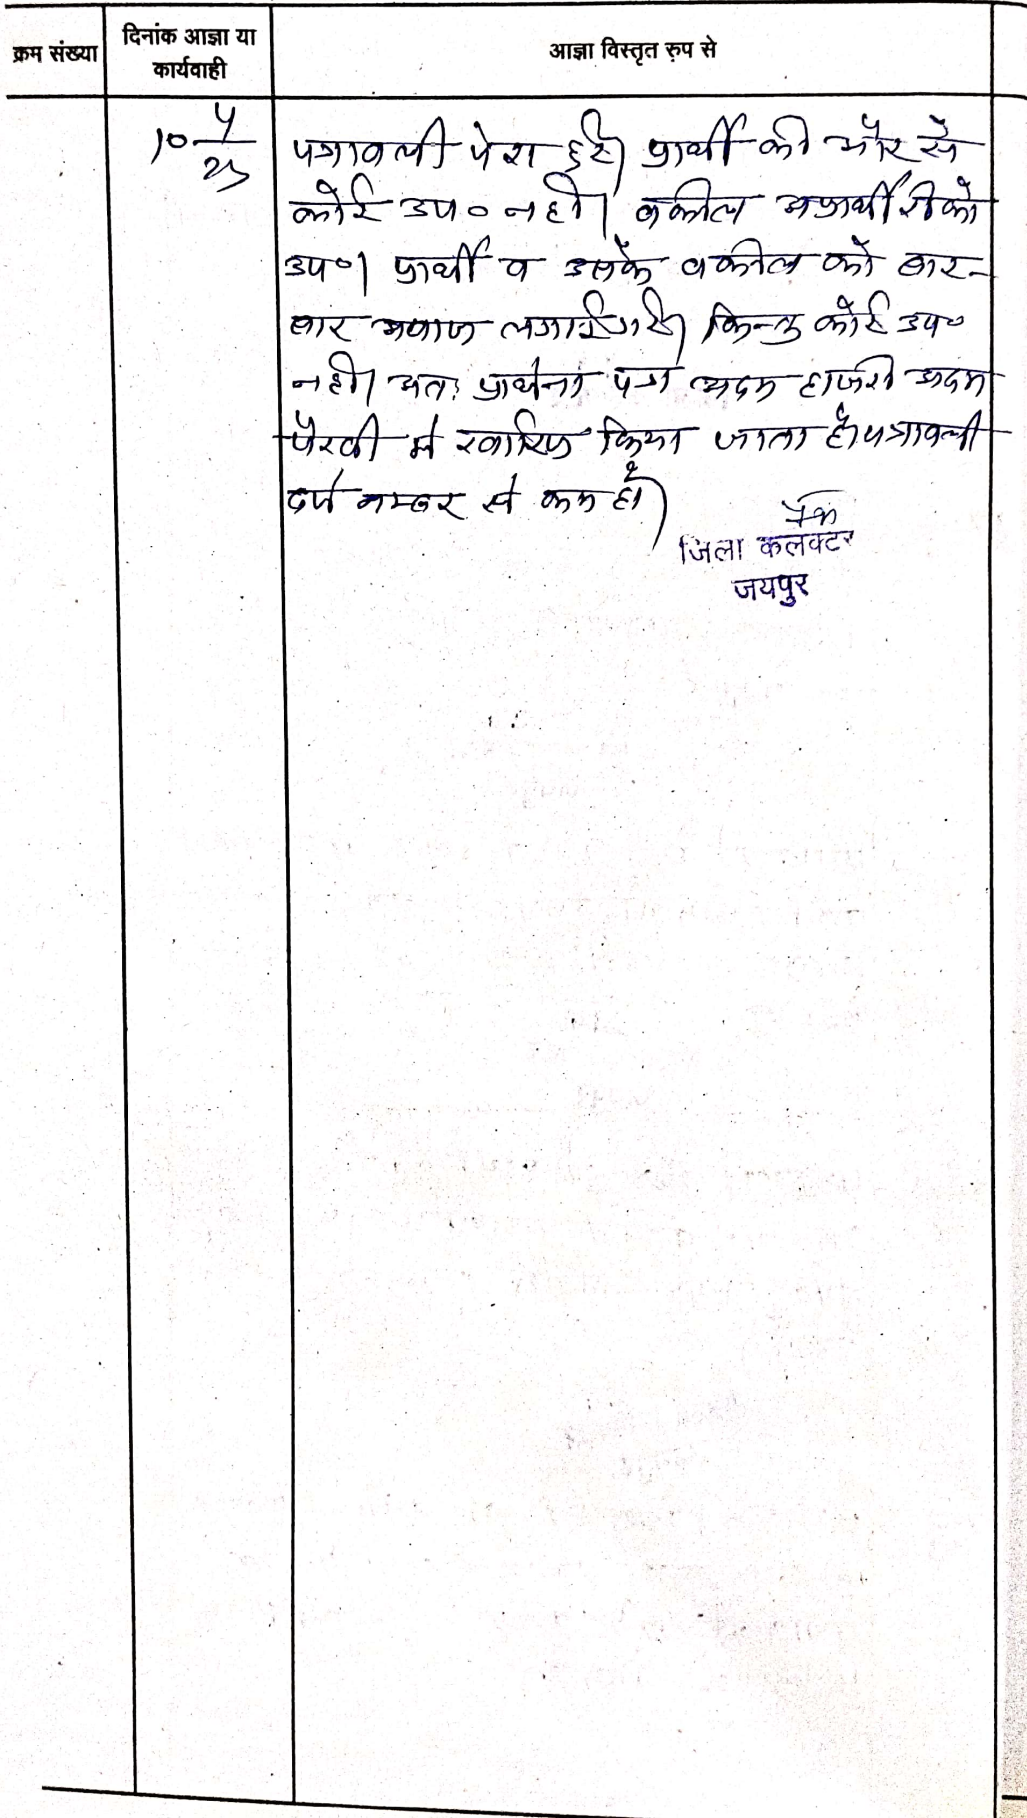 क्रम संख्या
दिनांक आज्ञा या
कार्यवाही
आज्ञा विस्तृत रुप से
10
25
पत्रावली पेश हुई। प्रार्थी की ओर से
कोई उप० नही। वकील अप्रार्थी रीको
उप०। प्रार्थी व उसके वकील को बार-
बार आवाज लगाई गई। किन्तु कोई उप०
नही। अतः प्रार्थना पत्र अदम हाजरी अदम
पैरवी मे खारिज किया जाता है। पत्रावली
दर्ज नम्बर से कम हो।
जिला कलक्टर
जयपुर